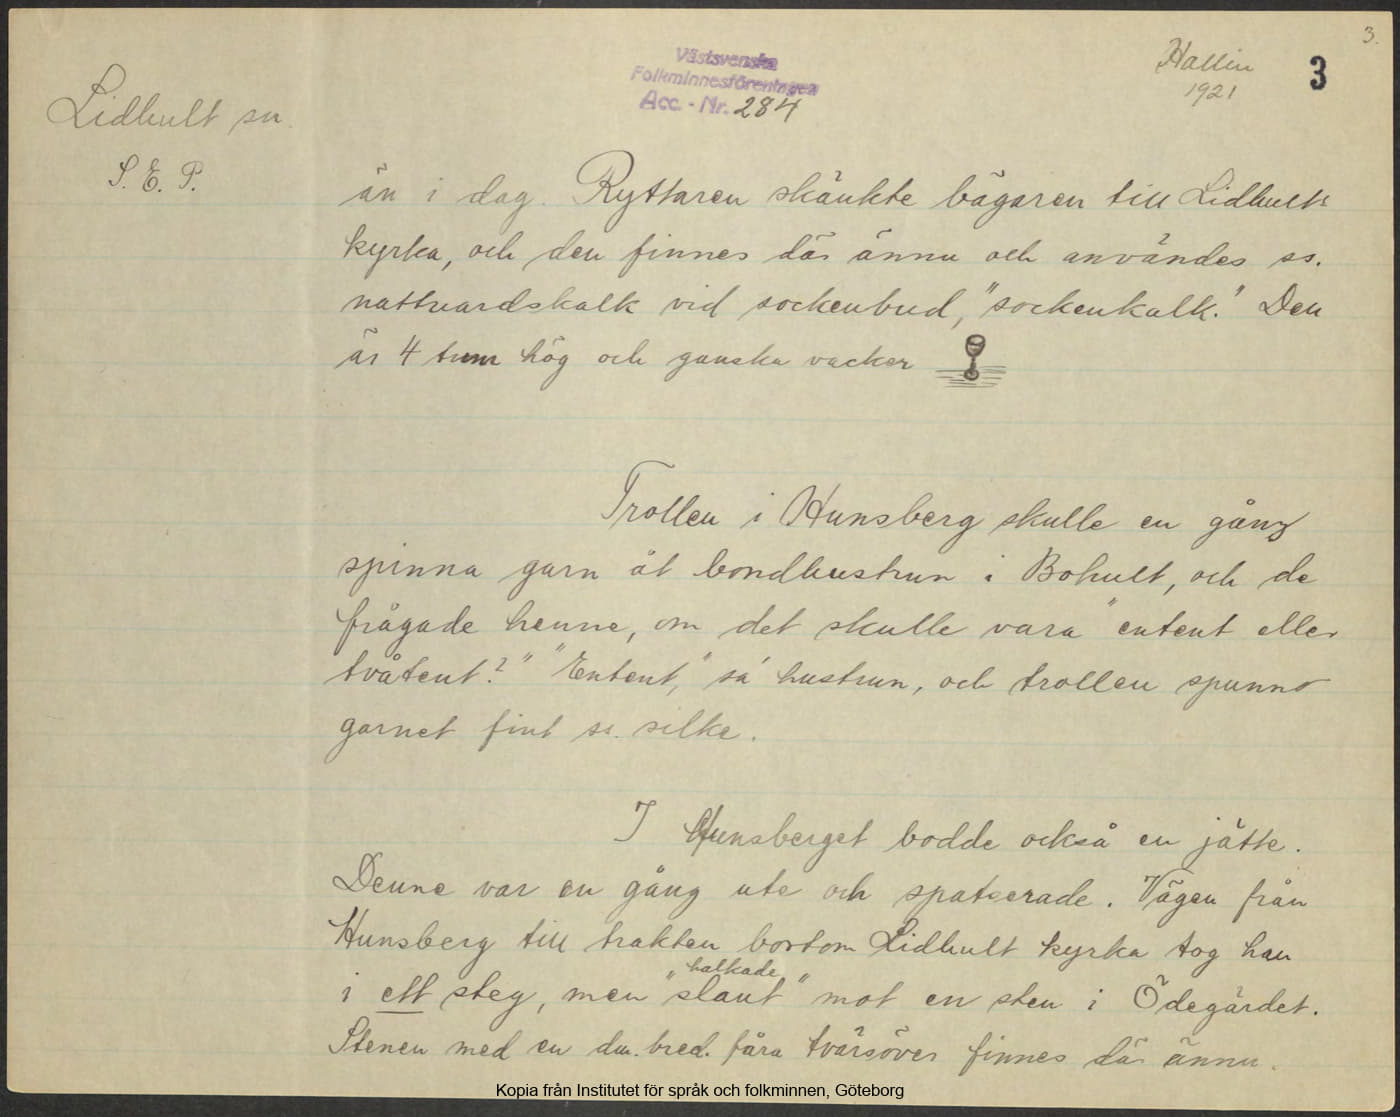 3.
Västsvenska
Folkminnesföreningen
Acc.-Nr. 284
Hallin
1921
3
Lidhult sn.
S. E. P.
än i dag. Ryttaren skänkte bägaren till Lidhults
kyrka, och den finnes där ännu och användes ss.
nattvardskalk vid sockenbud, "sockenkalk." Den
är 4 tum hög och ganska vacker
Trollen i Hunsberg skulle en gång
spinna garn åt bondhustrun i Bohult, och de
frågade henne, om det skulle vara "entent eller
tvåtent?" "Entent," sa' hustrun, och trollen spunno
garnet fint ss. silke.
I Hunsberget bodde också en jätte.
Denne var en gång ute och spatserade. Vägen från
Hunsberg till trakten bortom Lidhult kyrka tog han
halkade
i ett steg, men "slant" mot en sten i Ödegärdet.
Stenen med en dm. bred. fåra tvärsöver finnes där ännu.
Kopia från Institutet för språk och folkminnen, Göteborg